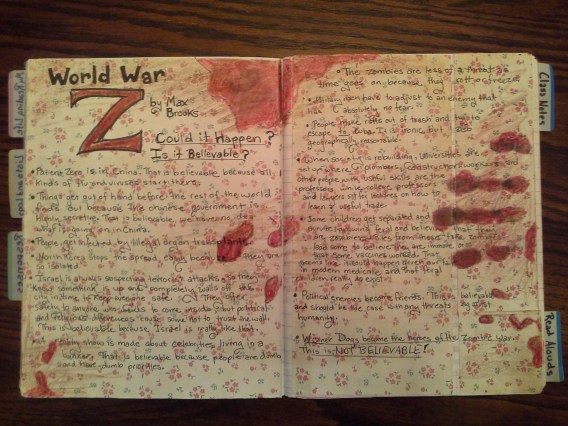 World War
Z
by Max
Brooks
Could it Happen?
Is it Believable?
• Patient Zero is in China. That is believable because all
kinds of flu and viruses start there.
• Things get out of hand before the rest of the world
finds out because the Chinese government is
highly secretive. That is believable, we have no idea
what is going on in China.
• People get infected by illegal organ transplants.
• North Korea stops the spread easily because they are
so isolated
• Israel is always suspecting terrorist attacks so they
know something is up and completely walls off the
city in time to keep everyone safe. They offer
to anyone who wants to come inside but political
and religious differences cause some not to trust the wall.
This is believable because Israel is really like that.
• A reality show is made about celebrities living in a
bunker. That is believable because people are dumb
and have dumb priorities.
• The zombies are less of a threat as
time goes on because they rot or freeze
• Military men have to adjust to an enemy that
has absolutely no fear.
• People make rafts out of trash and try to
escape to Cuba. It is ironic, but also
geographically reasonable.
• When society is rebuilding, universities
set up where carpenters, factory workers, and
other people with useful skills are the
professors. While college professors
and lawyers sit as students on how to
learn a useful trade.
• Some children get separated and
grow up feral and
zombies.
lead some to believe they are immune or
that some vaccines worked. That
in modern medicine, and that feral
children really do exist.
• Political enemies become friends. This is believable
and should be the case when any threats
humanity.
• Weiner Dogs become the heroes of the Zombie War.
This is NOT BELIEVABLE!
Class Notes
Read Alouds